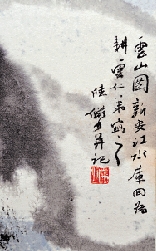 雲山圖新安江水庫回稿
耕雲仁弟寫之
陸儼少并記